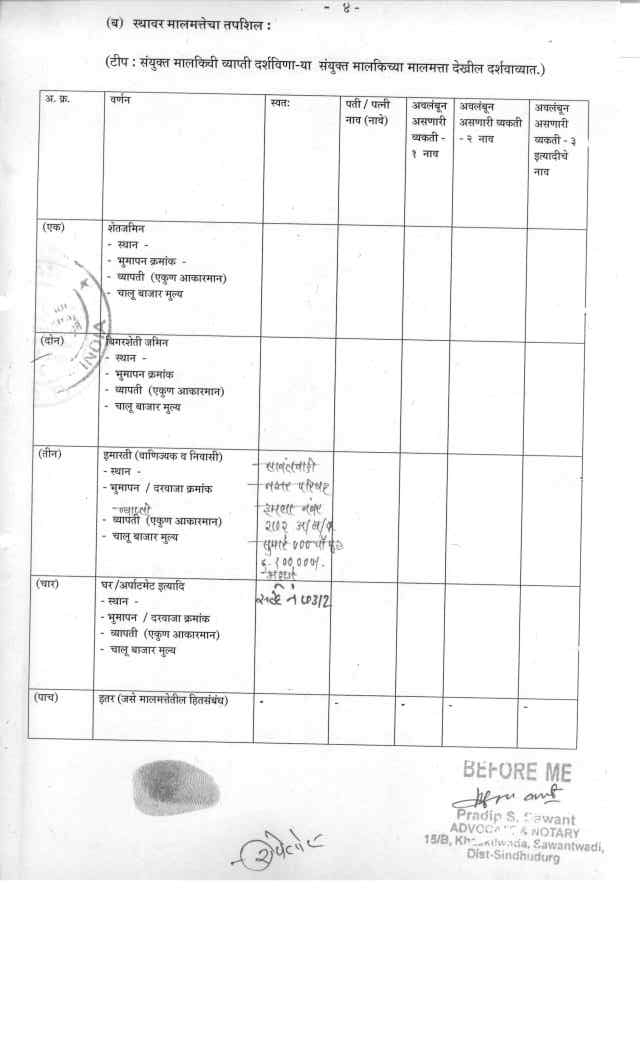 - ४ -
(ब) स्थावर मालमत्तेचा तपशिल :
(टीप : संयुक्त मालकिची व्याप्ती दर्शविणा-या संयुक्त मालकिच्या मालमत्ता देखील दर्शवाव्यात.)
अ. क्र. वर्णन स्वतः पती / पत्नी नाव (नावे) अवलंबून असणारी व्यकती - १ नाव अवलंबून असणारी व्यकती - २ नाव अवलंबून असणारी व्यकती - ३ इत्यादीचे नाव
(एक) शेतजमिन
- स्थान -
- भुमापन क्रमांक -
- व्यापती (एकुण आकारमान)
- चालू बाजार मुल्य
INDIA
(दोन) बिगरशेती जमिन
- स्थान -
- भुमापन क्रमांक
- व्यापती (एकुण आकारमान)
- चालू बाजार मुल्य
(तीन) इमारती (वाणिज्यक व निवासी)
- स्थान - सावंतवाडी
- भुमापन / दरवाजा क्रमांक नगर परिषद
इमला नंबर
- व्यापती (एकुण आकारमान)
- चालू बाजार मुल्य सुमारे
(चार) घर /अर्पाटमेट इत्यादि
- स्थान -
- भुमापन / दरवाजा क्रमांक
- व्यापती (एकुण आकारमान)
- चालू बाजार मुल्य
(पाच) इतर (जसे मालमत्तेतील हितसंबंध) - - - - -
BEFORE ME
Pradip S. Sawant
ADVOCATE & NOTARY
15/B, Sawantwadi,
Dist-Sindhudurg